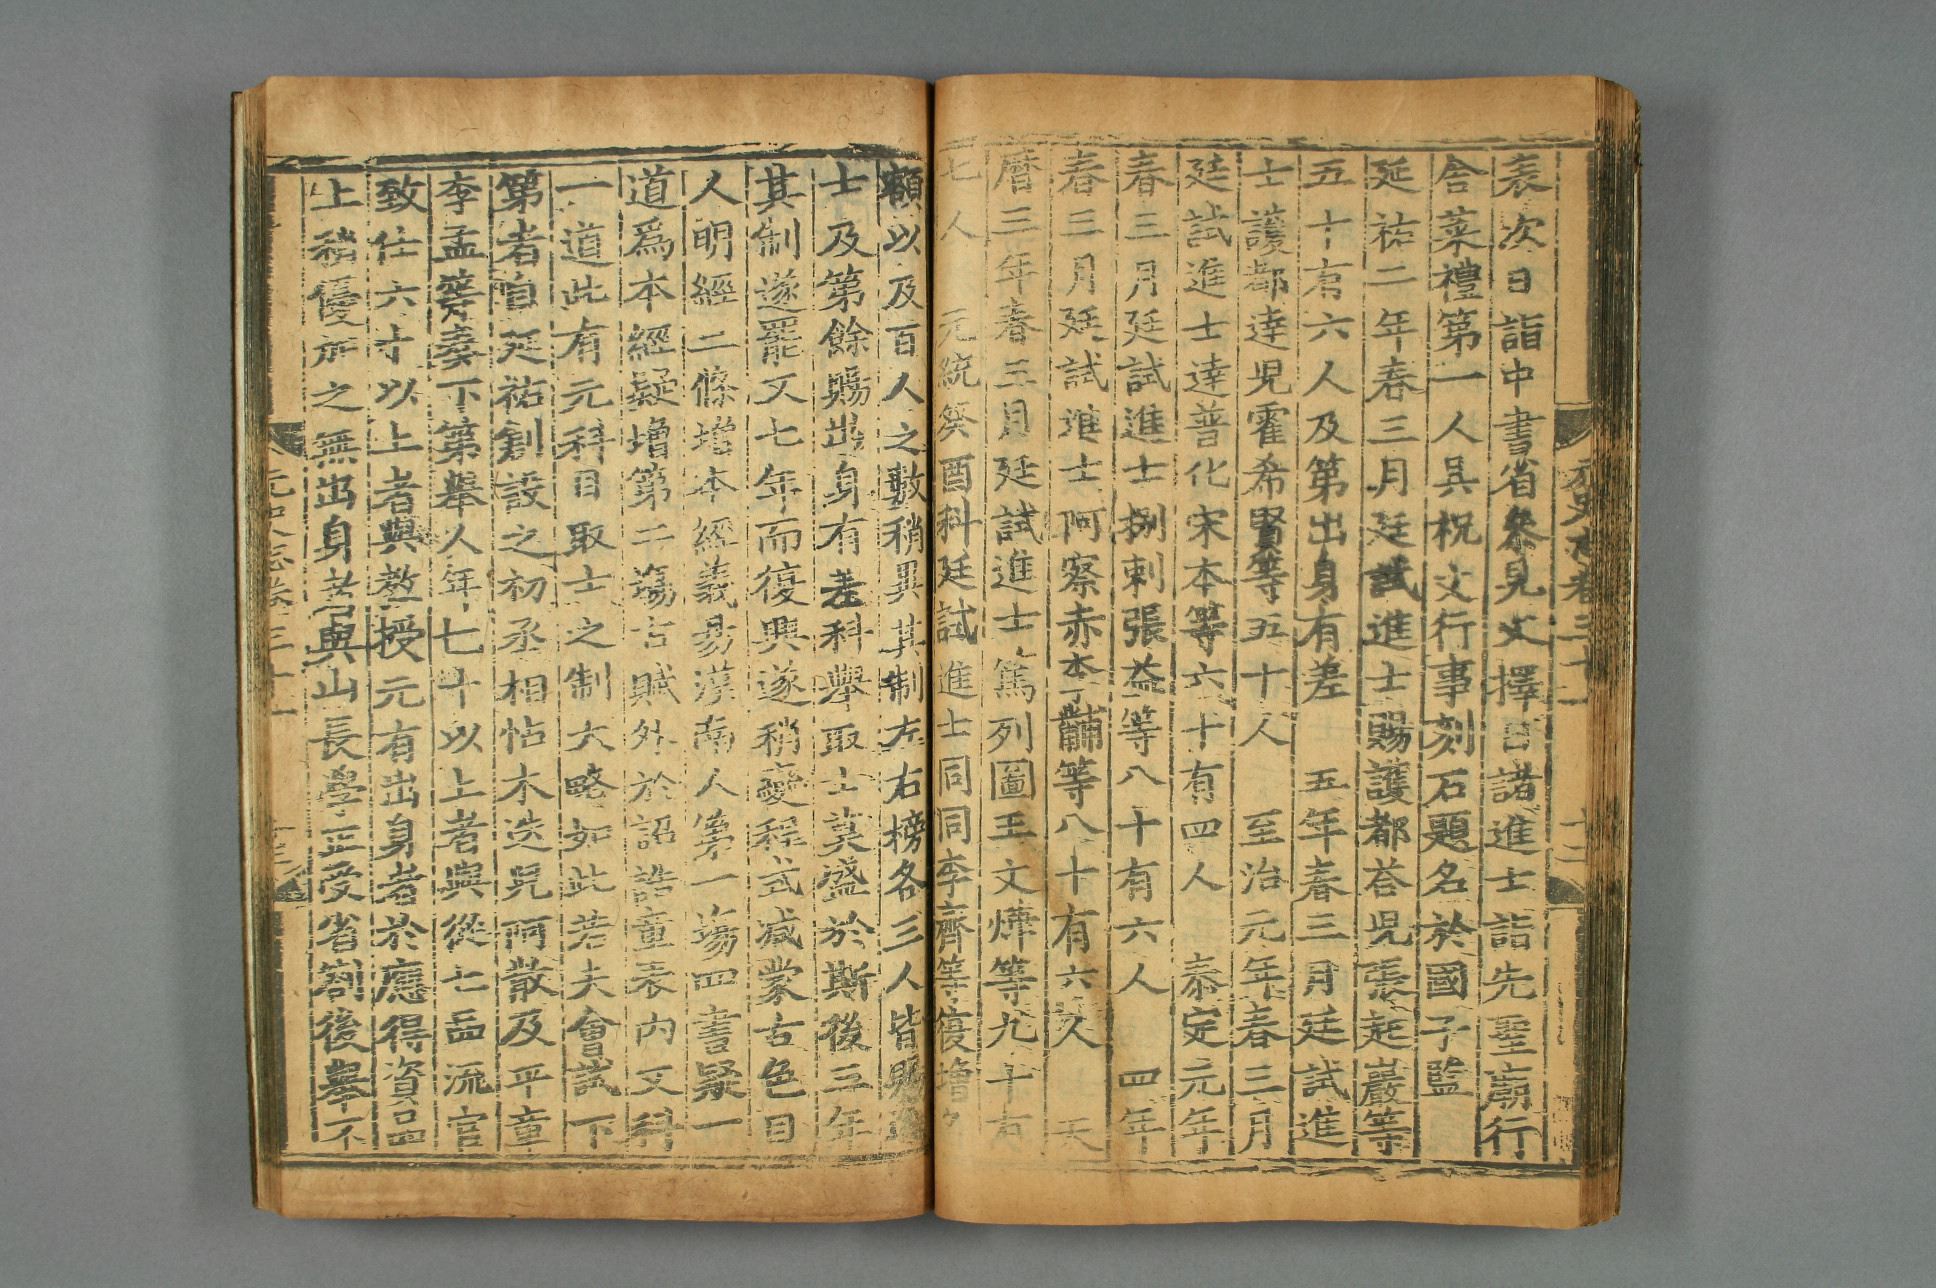 表次日詣中書省參見又擇日諸進士詣先聖廟行
舍菜禮第一人具祝文行事刻石題名於國子監
延祐二年春三月廷試進士賜護都荅児張起巖等
五十有六人及第出身有差　五年春三月廷試進
士護都達児霍希賢等五十人　至治元年春三月
廷試進士達普化宋本等六十有四人　泰定元年
春三月廷試進士捌剌張益等八十有六人　四年
春三月廷試進士阿察赤李黼等八十有六人　天
曆三年春三月廷試進士篤列圖王文燁等九十有
七人　元統癸酉科廷試進士同同李齊等復增名
額以及百人之數稍異其制左右榜各三人皆賜進
士及第餘賜出身有差科舉取士莫盛於斯後三年
其制遂罷又七年而復興遂稍變程式减蒙古色目
人明經二條增本經義易漢南人第一場四書疑一
道爲本經疑增第二場古賦外於詔誥章表内又科
一道此有元科目取士之制大略如此若夫會試下
第者自延祐創設之初丞相帖木迭児阿散及平章
李孟等奏下第舉人年七十以上者與從七品流官
致仕六十以上者與教授元有出身者於應得資品
上稍優加之無出身者與山長學正受省劄後舉不
元史志卷三十一　十二
元史志卷三十一